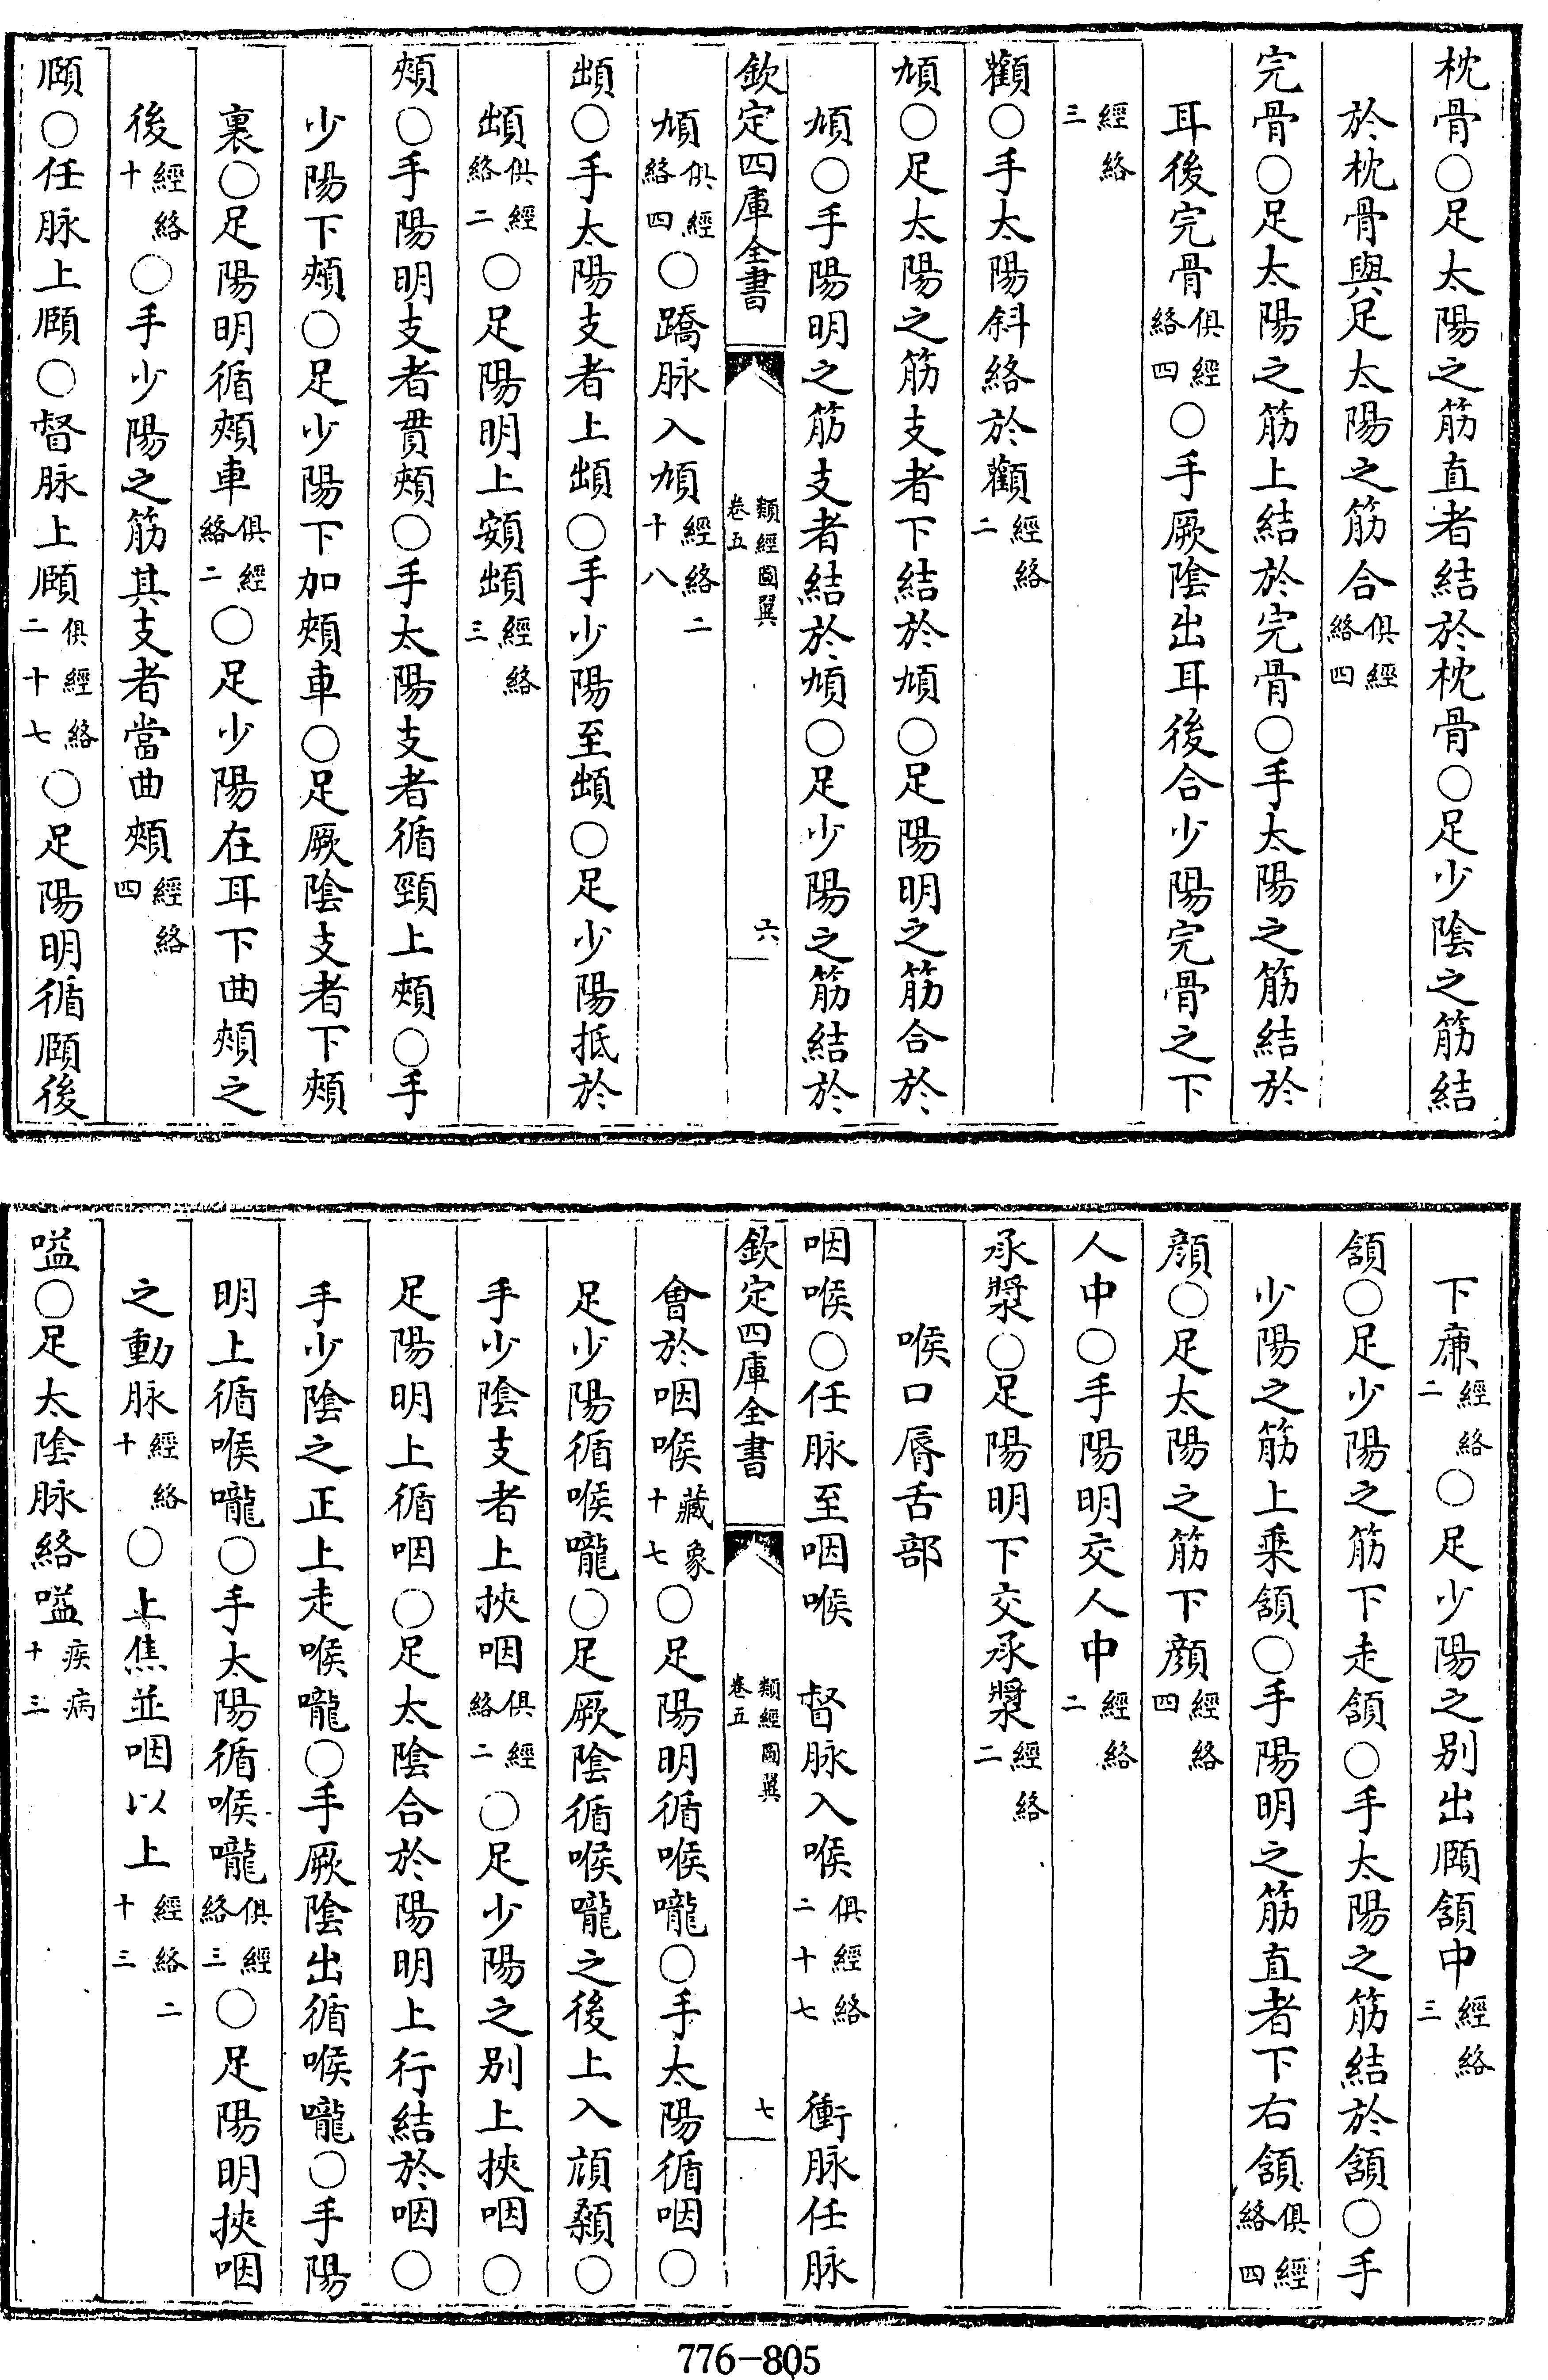 枕骨○足太陽之筋直者結於枕骨○足少陰之筋結
於枕骨與足太陽之筋合俱經絡四
完骨○足太陽之筋上結於完骨○手太陽之筋結於
耳後完骨俱經絡四○手厥陰出耳後合少陽完骨之下
經絡三
顴○手太陽斜絡於顴經絡二
頄○足太陽之筋支者下結於頄○足陽明之筋合於
頄○手陽明之筋支者結於頄○足少陽之筋結於
欽定四庫全書
類經圖翼
卷五
六
頄俱經絡四○蹻脉入頄經絡二十八
䪼○手太陽支者上䪼○手少陽至䪼○足少陽抵於
䪼俱經絡二○足陽明上頞䪼經絡三
頰○手陽明支者貫頰○手太陽支者循頸上頰○手
少陽下頰○足少陽下加頰車○足厥陰支者下頰
裏○足陽明循頰車俱經絡二○足少陽在耳下曲頰之
後經絡十○手少陽之筋其支者當曲頰經絡四
頤○任脉上頤○督脉上頤俱經絡二十七○足陽明循頤後
下廉經絡二○足少陽之别出頤頷中經絡三
頷○足少陽之筋下走頷○手太陽之筋結於頷○手
少陽之筋上乘頷○手陽明之筋直者下右頷俱經絡四
顔○足太陽之筋下顔經絡四
人中○手陽明交人中經絡二
承漿○足陽明下交承漿經絡二
喉口脣舌部
咽喉○任脉至咽喉 督脉入喉俱經絡二十七 衝脉任脉
欽定四庫全書
類經圖翼
卷五
七
會於咽喉藏象十七○足陽明循喉嚨○手太陽循咽○
足少陽循喉嚨○足厥陰循喉嚨之後上入頏顙○
手少陰支者上挾咽俱經絡二○足少陽之别上挾咽○
足陽明上循咽○足太陰合於陽明上行結於咽○
手少陰之正上走喉嚨○手厥陰出循喉嚨○手陽
明上循喉嚨○手太陽循喉嚨俱經絡三○足陽明挾咽
之動脉經絡十○上焦並咽以上經絡二十三
嗌○足太陰脉絡嗌疾病十三
776-805